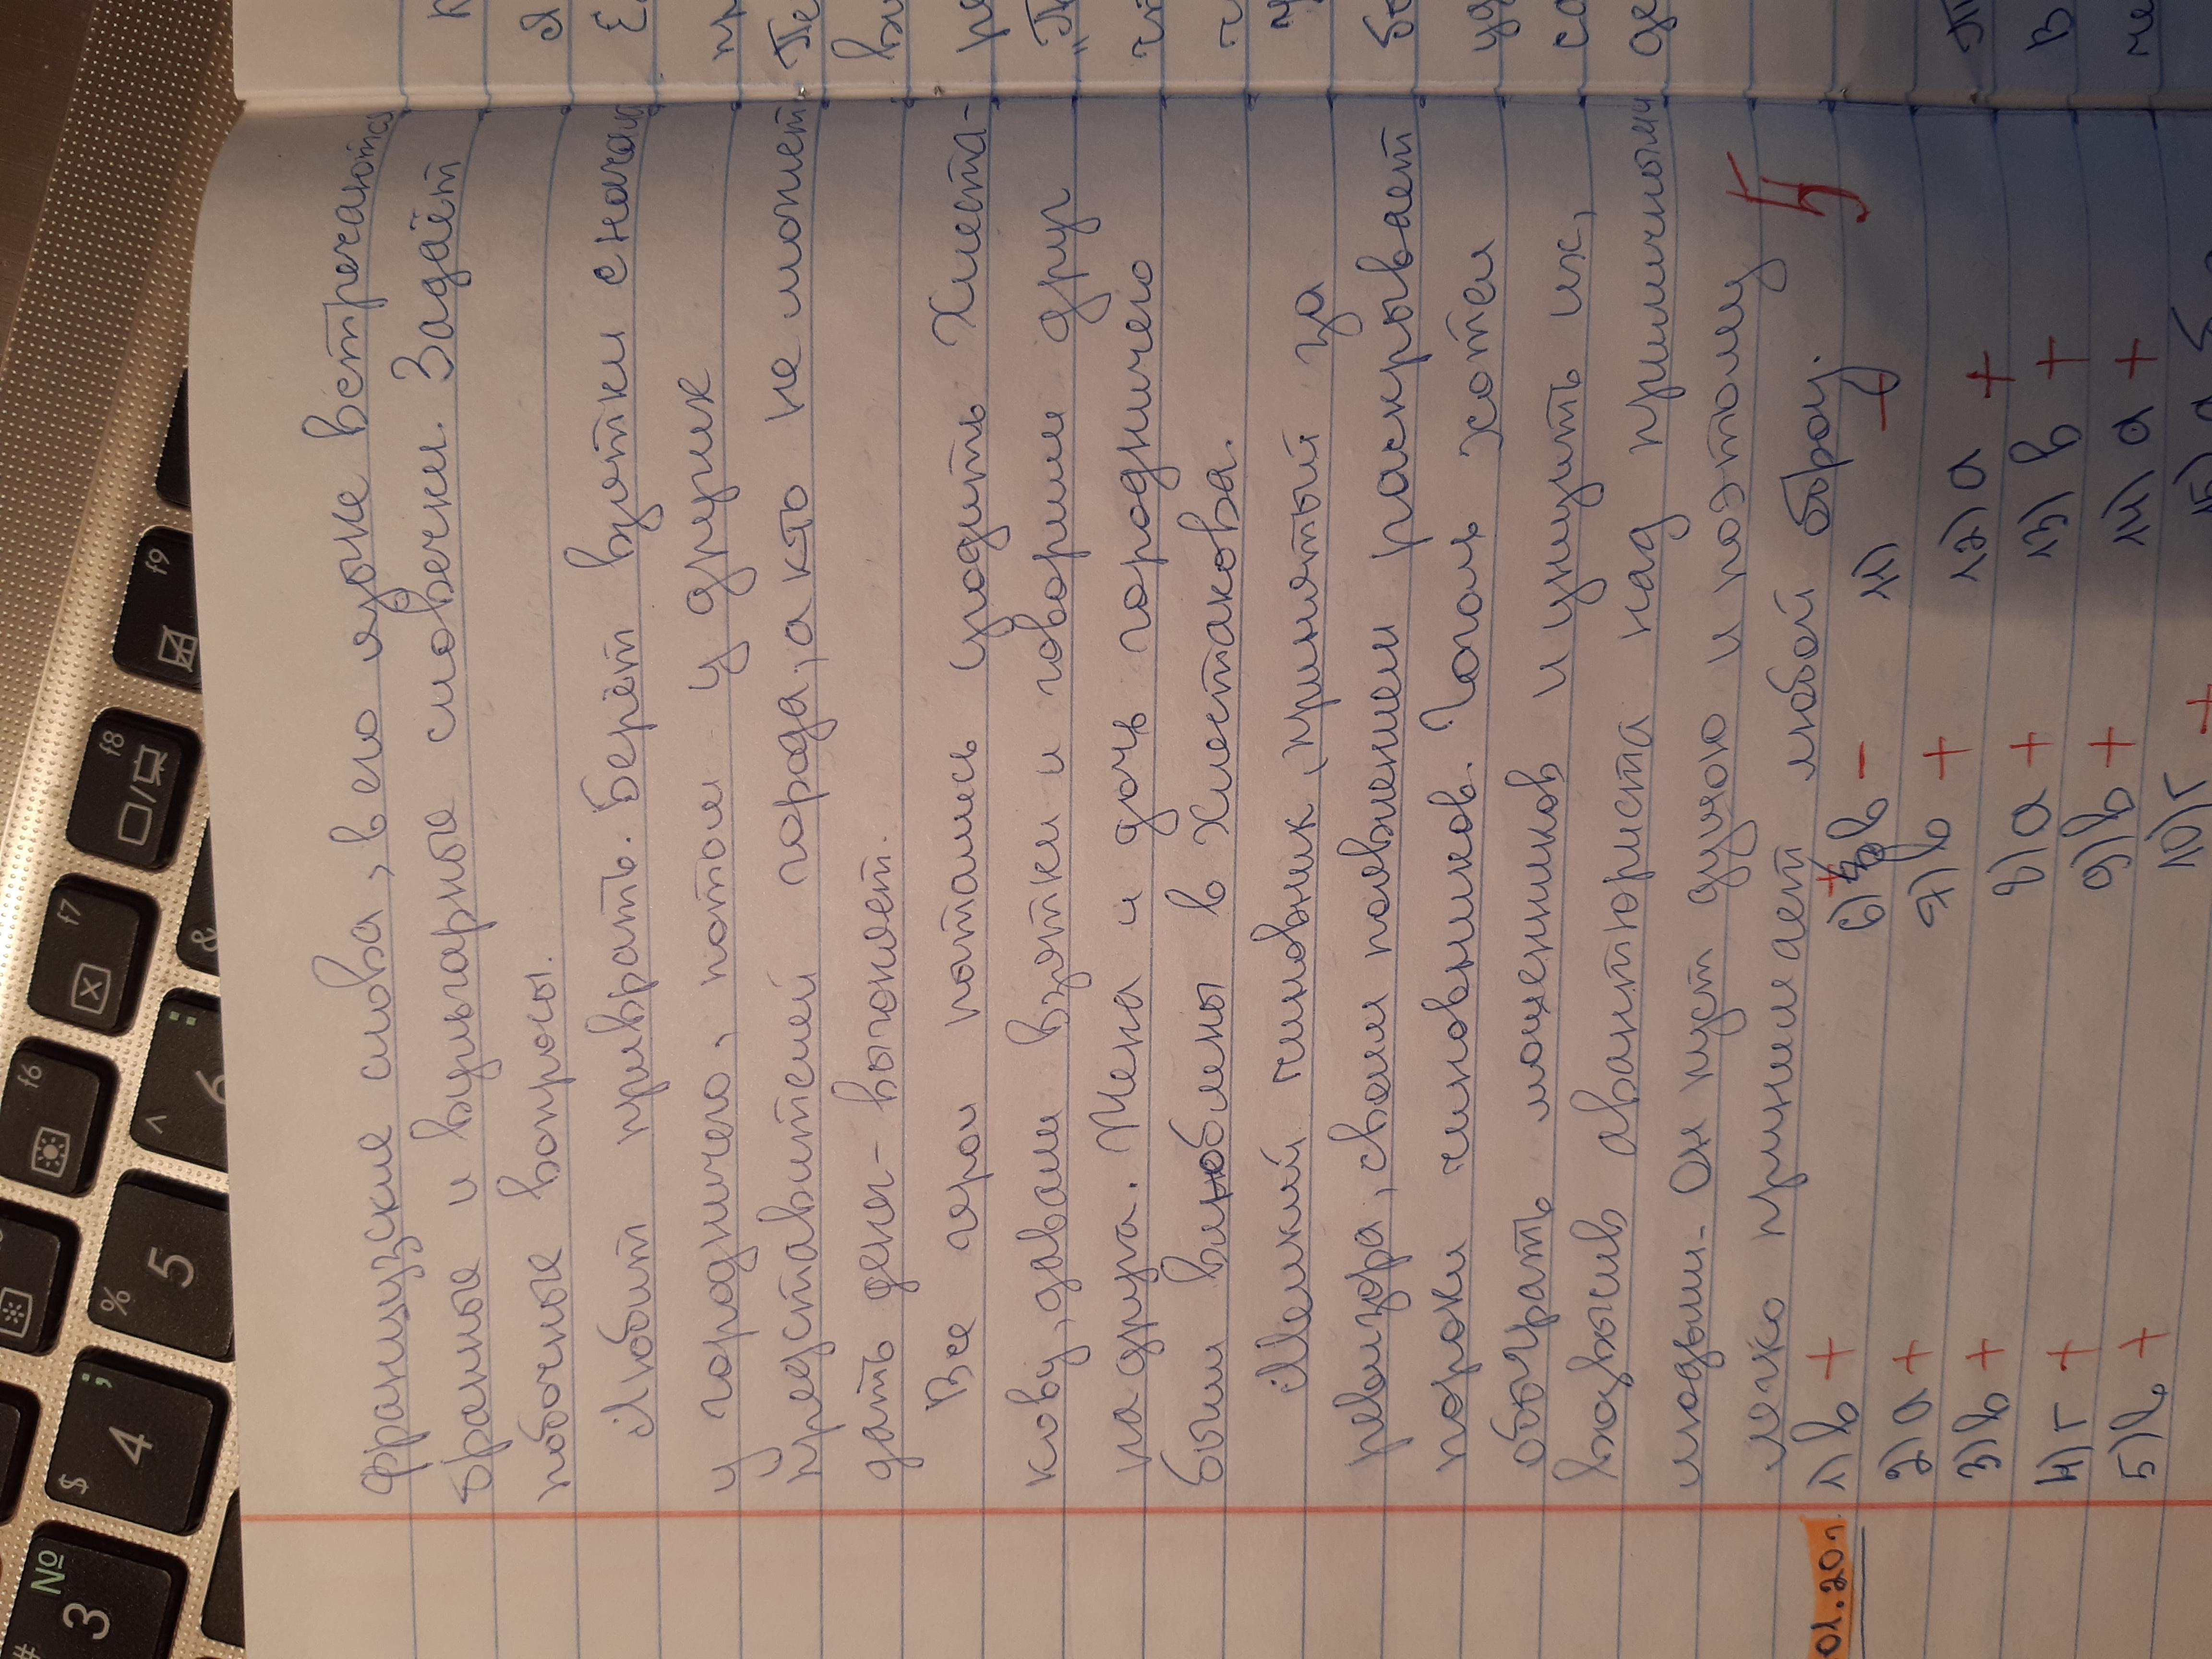 французские слова, в его языке встречаются
бранные и вульгарные словечки. Задаёт
побочные вопросы.
Любит приврать. Берёт взятки сначала
у городничего, потом у других
представителей города, а кто не может
дать денег - выгоняет.
Все герои пытались угодить Хлеста-
кову, давали взятки и говорили друг
на друга. Жена и дочь городничего
были влюблены в Хлестакова.
Мелкий чиновник, принятый за
ревизора, своим появлением раскрывает
пороки чиновников. Гоголь хотел
обыграть мошенников и унизить их,
возвысив авантюриста над приличными
людьми. Он пуст душою и поэтому
легко принимает любой образ.
5
01.20г.
1) в + 6) в - 11) -
2) а + 7) в + 12) а +
3) в + 8) а + 13) в +
4) г + 9) в + 14) а +
5) в + 10) г + 15) а
3 № #
4 $ ;
5 %
6 ^ :
&
f6
f7
f8
f9